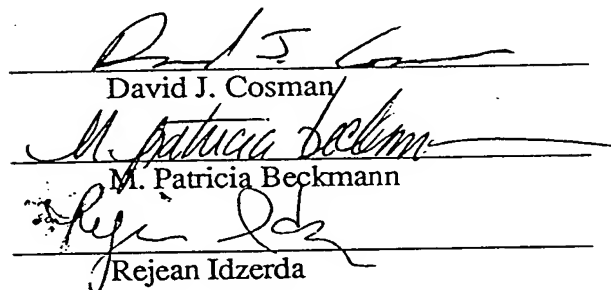 David J. Cosman
M. Patricia Beckmann
M. Patricia Beckmann
Rejean Idzerda